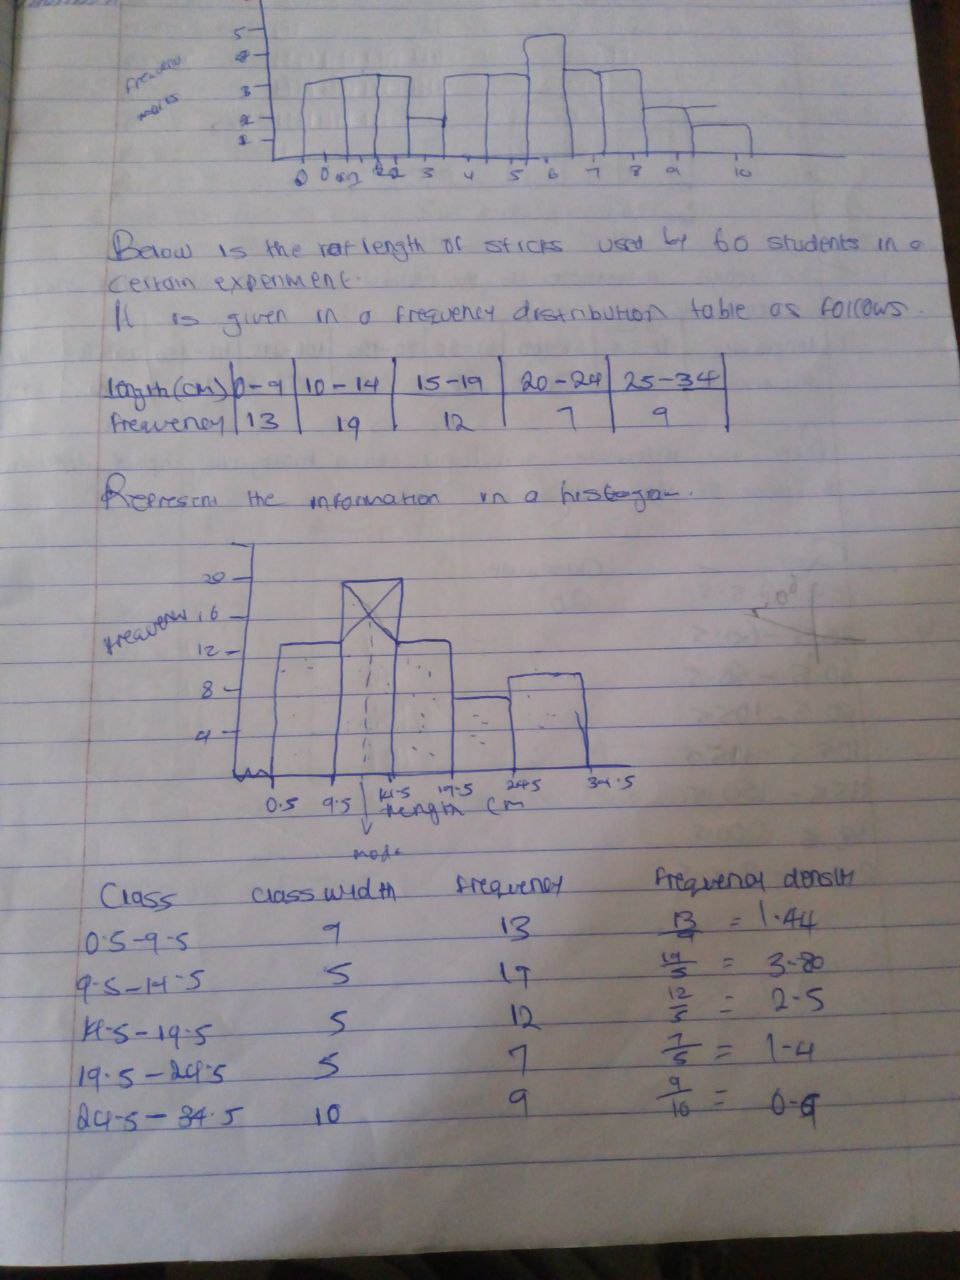 5
3
2
1
Frequency
marks
0 0 2 3 4 5 6 7 8 9 10
Below is the length of sticks used by 60 students in a
certain experiment.
It is given in a frequency distribution table as follows.
length (cm) 0-9 10-14 15-19 20-24 25-34
Frequency 13 19 12 7 9
Represent the information in a histogram.
20
16
12
8
4
Frequency
0.5 9.5 14.5 19.5 24.5 34.5
length cm
mode
Class class width frequency frequency density
0.5-9.5 9 13 13/9 = 1.44
9.5-14.5 5 19 19/5 = 3.80
14.5-19.5 5 12 12/5 = 2.5
19.5-24.5 5 7 7/5 = 1.4
24.5-34.5 10 9 9/10 = 0.9